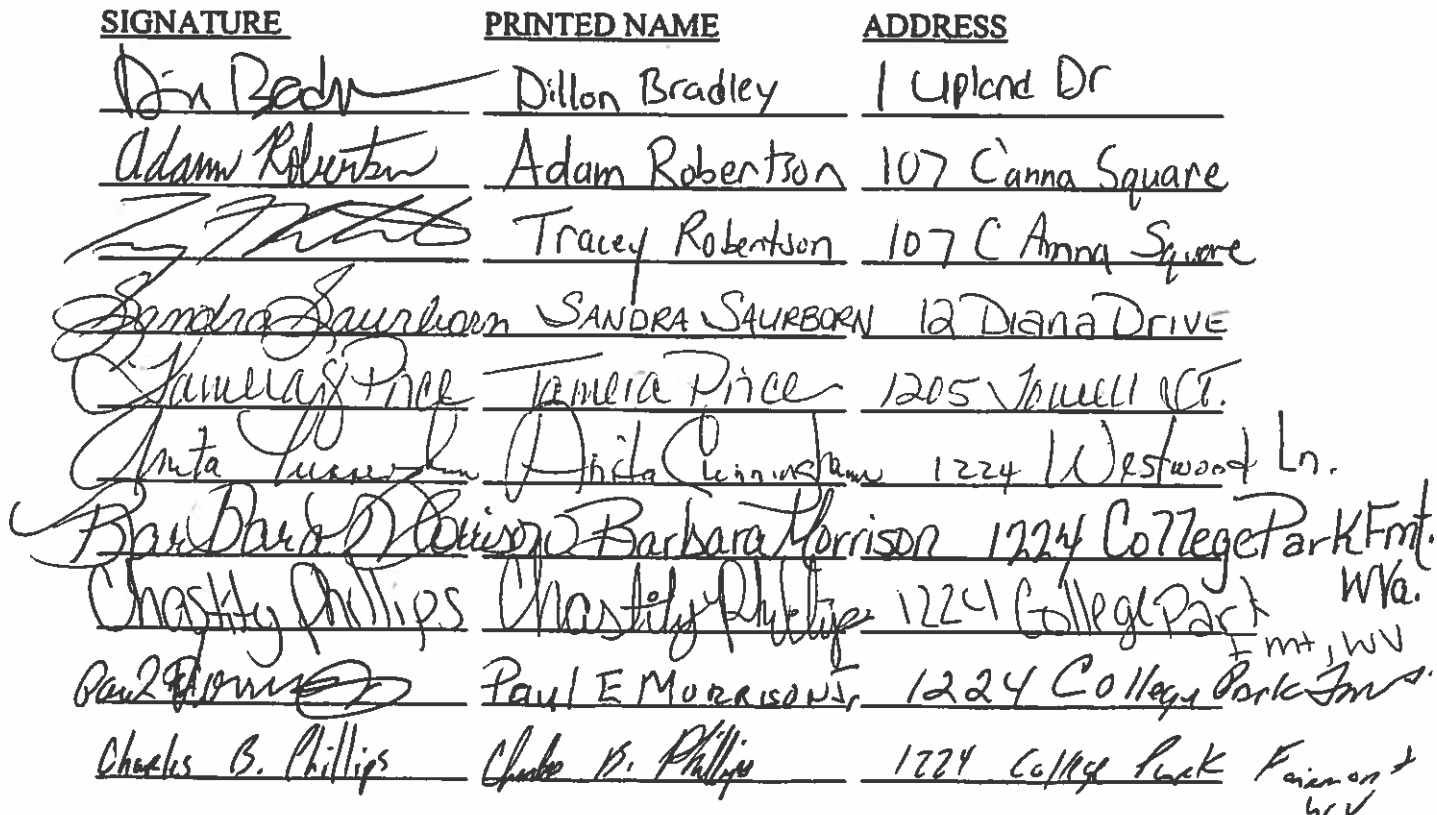 SIGNATURE PRINTED NAME ADDRESS
Dillon Bradley 1 Upland Dr
Adam Robertson Adam Robertson 107 Canna Square
Tracey Robertson 107 C Anna Square
Sandra Saurborn SANDRA SAURBORN 12 Diana DRIVE
Tamera J Price Tamera Price 1205 CT.
Anita Cunningham Anita Cunningham 1224 Westwood Ln.
Barbara Morrison Barbara Morrison 1224 College Park Fmt.
WVa.
Chastity Phillips Chastity Phillips 1224 College Park
Fmt, WV
Paul E Morrison Jr 1224 College Park
Charles B. Phillips Charles B. Phillips 1224 College Park Fairmont
WV